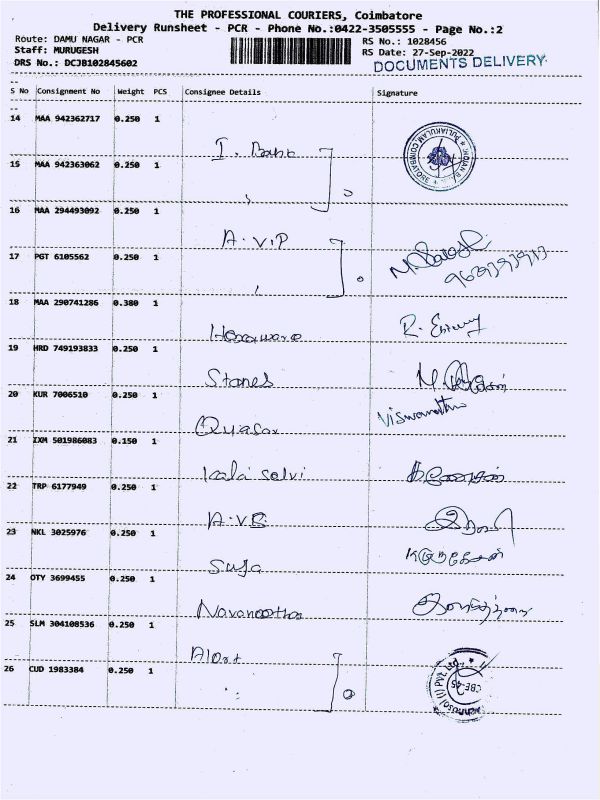 THE PROFESSIONAL COURIERS, Coimbatore
Delivery Runsheet - PCR - Phone No.:0422-3505555 - Page No.:2
Route: DAMU NAGAR - PCR
RS No.: 1028456
Staff: MURUGESH
RS Date: 27-Sep-2022
DRS No.: DCJB102845602
DOCUMENTS DELIVERY
S No Consignment No Weight PCS Consignee Details Signature
14 MAA 942362717 0.250 1
I. Bank
15 MAA 942363062 0.250 1
16 MAA 294493092 0.250 1
A.V.P
17 PGT 6105562 0.250 1
18 MAA 290741286 0.380 1
Hexaware
19 HRD 749193833 0.250 1
Stanes
20 KUR 7006510 0.250 1
Viswanathan
Quasar
21 IXM 501986083 0.150 1
Kalai selvi
22 TRP 6177949 0.250 1
A.V.B
23 NKL 3025976 0.250 1
Suja
24 OTY 3699455 0.250 1
25 SLM 304108536 0.250 1
Alert
26 CUD 1983384 0.250 1